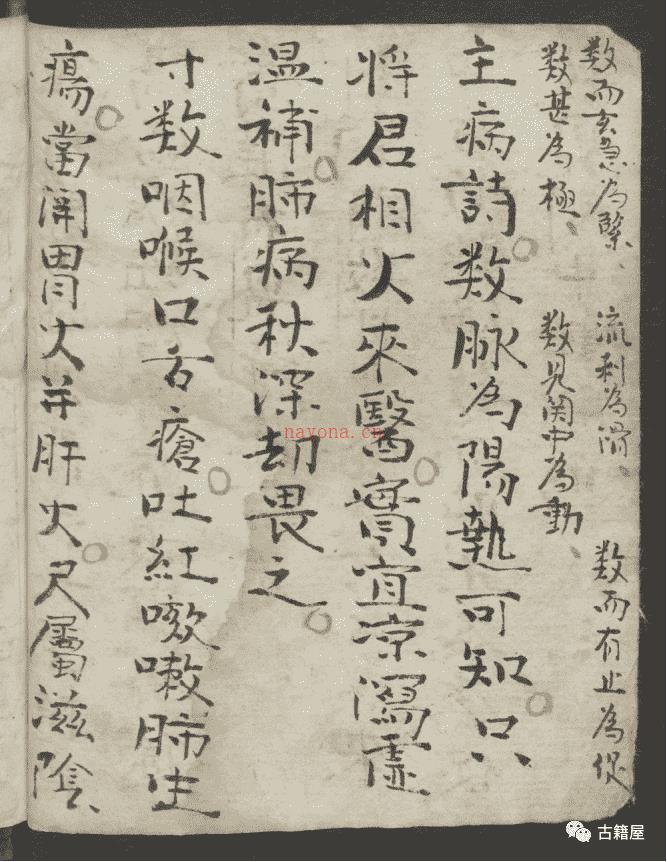 数而玄急為緊、流利為滑、数而有止為促
数甚為極、数見関中為動、
主病詩数脉為陽熱可知只
将君相火來醫實宜凉瀉虛
温補肺病秋深却畏之
寸数咽喉口舌瘡吐紅咳嗽肺生
瘍當開胃火并肝火尺屬滋陰、
nayona.cn
古籍屋